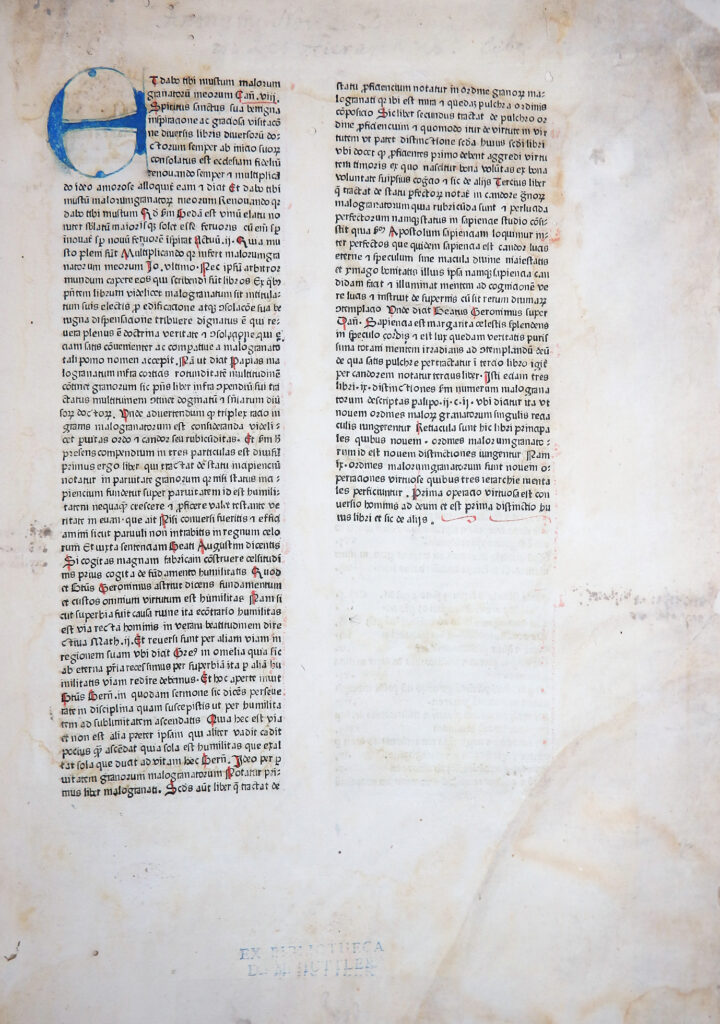 Et dabo tibi mustum malorum
granatorū meorum Cañ. viii.
Spiritus sanctus sua benigna
inspiracione ac graciosa visitacō
ne diversis libris diversorū do-
ctorum semper ab inicio suor̄
consolatus est ecclesiam fideliū
renouando semper et multiplicā
do ideo amorose alloquiť eam et dicit Et dabo tibi
mustū malorumgranator̄ meorum Renouando qr̄
dabo tibi mustum
nouat sp̄ nouū feruorē īspirat Actuū .ij. Quia mu
sto pleni sūt Multiplicando qr̄ infert malorumgra
natorum meorum Jo. vltimo. Nec ipsū arbitror
mundum capere eos qui scribendi sūt libros Ex qͥbꝫ
pn̄tem librum videlicet malogranatum sic intitula-
tum suis electis
nigna dispensacione tribuere dignatus ē qui re-
tali pomo nomen accepit. Nā ut dicit Papias ma
logranatum infra corticis rotunditatē multitudinē
cōtinet granorum sic pn̄s liber infra ꝯpendiū sui tra
ctatus multitudinem
sor̄ doctor̄. Vnde advertendum qꝫ triplex racio in
granis malogranatorum est consideranda videli-
cet pͣuitas ordo et candor seu rubicūditas. Et
presens compendium in tres particulas est diuisū
primus ergo liber qui tractat de statu incipienciū
notatur in paruitate granorum qꝫ nisi status in-
piencium fundetur super paruitatem id est humili-
tatem nequaqͣꝫ crescere et ꝓficere valet testante ve
ritate in euan. que ait Nisi conversi fueritis et effici
amini sicut paruuli non intrabitis in regnum celo
rum Et iuxta sentenciam Beati Augustini dicentis
Si cogitas magnam fabricam cōstruere celsitudi
nis prius cogita de fūdamento humilitatis Quod
et Btūs Geronimus astruit dicens fundamentum
et custos omnium virtutum est humilitas Nam si
cut superbia fuit causa ruine ita ecōtrario humilitas
est via recta hominis in veram beatitudinem dire
ctiua Math. ij. Et reversi sunt per aliam viam in
regionem suam vbi dicit Greg̃ in omelia quia sic
ab eterna pr̄ia recessimus per superbiā ita ꝑ aliā hu
militatis viam redire debemus. Et hoc aperte inuit
Btūs Berñ. in quodam sermone sic dicēs perseue
rate in disciplina quam suscepistis ut per humilita
tem ad sublimitatem ascendatis Quia hec est via
et non est alia preter ipsam qui aliter vadit cadit
pocius qͣꝫ ascēdat quia sola est humilitas que exal
tat sola que ducit ad vitam hec Berñ. Ideo per ꝑ
uitatem granorum malogranatorum Notatur pri-
mus liber malogranati. Scd̄s aūt liber q̄ tractat de
statu ꝓficiencium notatur in ordine granor̄ ma-
logranati qr̄ ibi est mira et quedaꝫ pulchra ordinis
cōposicio Sic liber secundus tractat de pulchro or
dine ꝓficiencium et quomodo itur de virtute in vir
tutem vt patet distinctione scd̄a huius scd̄i libri
vbi docet qꝫ ꝓficientes primo debent aggredi virtu
tem timoris ex quo nascitur bona volūtas ex bona
voluntate suscipitur cogitacio et sic de alijs Tercius liber
q̄ tractat de statu ꝑfector̄ notat in candore g̃nor̄
malogranatorum quia rubicūda sunt et perlucida
perfectorum namqꝫ status in sapiencie studio cōsi-
stit quia Apostolum sapienciam loquimur in-
ter perfectos que quidem sapiencia est candor lucis
eterne et speculum sine macula diuine maiestatis
et ymago bonitatis illius ipsa namqꝫ sapiencia can
didam facit et illuminat mentem ad cognicionē ve
re lucis et instruit de supernis cū sit rerum diuinar̄
ꝯtemplacio Unde dicit Beatus Geronimus super
Cañ. Sapiencia est margarita celestis splendens
in speculo cordis et est lux quedam veritatis puris
sima totam mentem irradians ad ꝯtemplandū deū
de qua satis pulchre pertractatur ī tercio libro igiť
per candorem notatur tercius liber. Isti eciam tres
libri .ix. distinctiones
natorum descriptas palipo. ij. c. ij. vbi dicitur ita vt
nouem ordines malor̄ granatorum singulis retia
culis iungerentur Retiacula sunt hic libri principa
les quibus nouem ordines malorum granato-
rum id est nouem distinctiones iunguntur Nam
ix. ordines malorumgranatorum sunt nouem o-
peraciones virtuose quibus tres ierarchie menta
les perficiuntur. Prima operacio virtuosa est con
uersio hominis ad deum et est prima distinctio hu
ius libri et sic de alijs.
EX BIBLIOTHECA
DR. M. HUTTLER